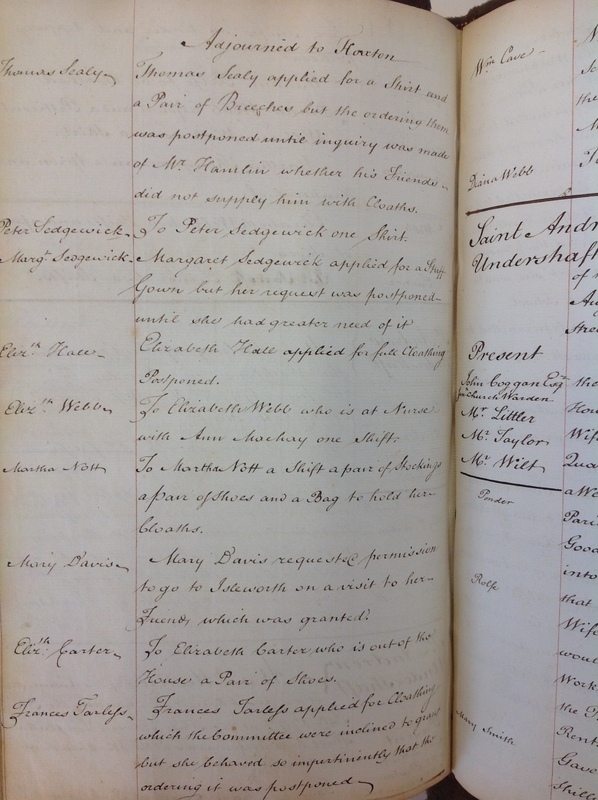 Adjourned to Hoxton
Thomas Sealy
Thomas Sealy applied for a Shirt and
a Pair of Breeches but the ordering them
was postponed until inquiry was made
of Mr. Hamlin whether his Friends
did not supply him with Cloaths.
Peter Sedgewick
To Peter Sedgewick one Shirt.
Margt. Sedgewick
Margaret Sedgewick applied for a Stuff
Gown but her request was postponed
until she had greater need of it
Elizth. Hall
Elizabeth Hall applied for full Cloathing
Postponed.
Elizth. Webb
To Elizabeth Webb who is at Nurse
with Ann Mackay one Shift.
Martha Nott
To Martha Nott a Shift a pair of Stockings
a pair of Shoes and a Bag to hold her
Cloaths.
Mary Davis
Mary Davis requested permission
to go to Isleworth on a visit to her
Friends which was granted.
Elizth. Carter
To Elizabeth Carter who is out of the
House a Pair of Shoes.
Frances Tarless
Frances Tarless applied for Cloathing
which the Committee were inclined to grant
but she behaved so impertinently that the
ordering it was postponed
Wm. Cave
the
Diana Webb
Saint Andr
Undershaft
of
Stre
Present
John Coggan Esqr.
Church Warden
the
Mr. Littler
Hou
Mr. Taylor
Wife
Mr. Wilt
Qua
a We
Ponder
Pari
Good
into
Rolfe
that
Wife
woul
Work
the
Mary Smith
Rent
Gave
shill